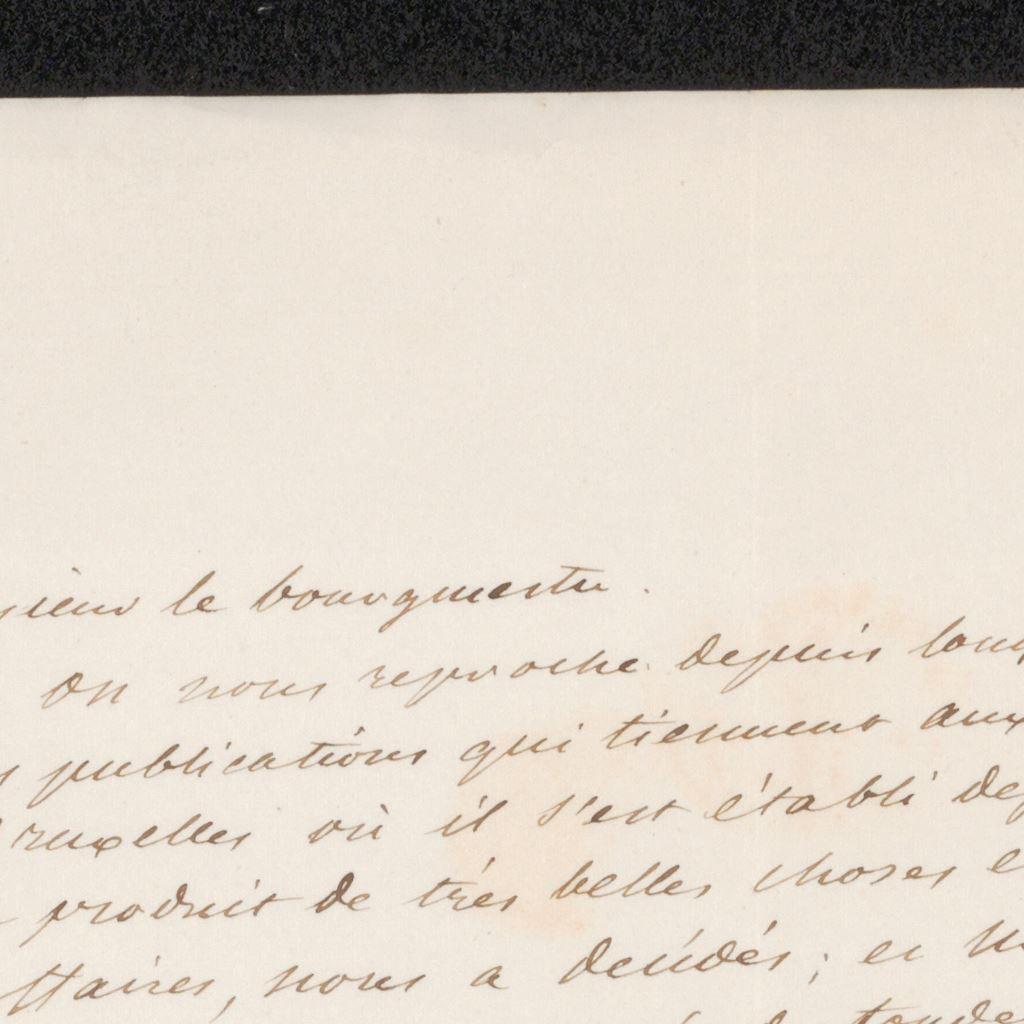 sieur le bourgmestre.
On nous reproche depuis long
publications qui tiennent aux
Bruxelles où il s'est établi dep
produit de très belles choses e
ttaires, nous a décidés; et n